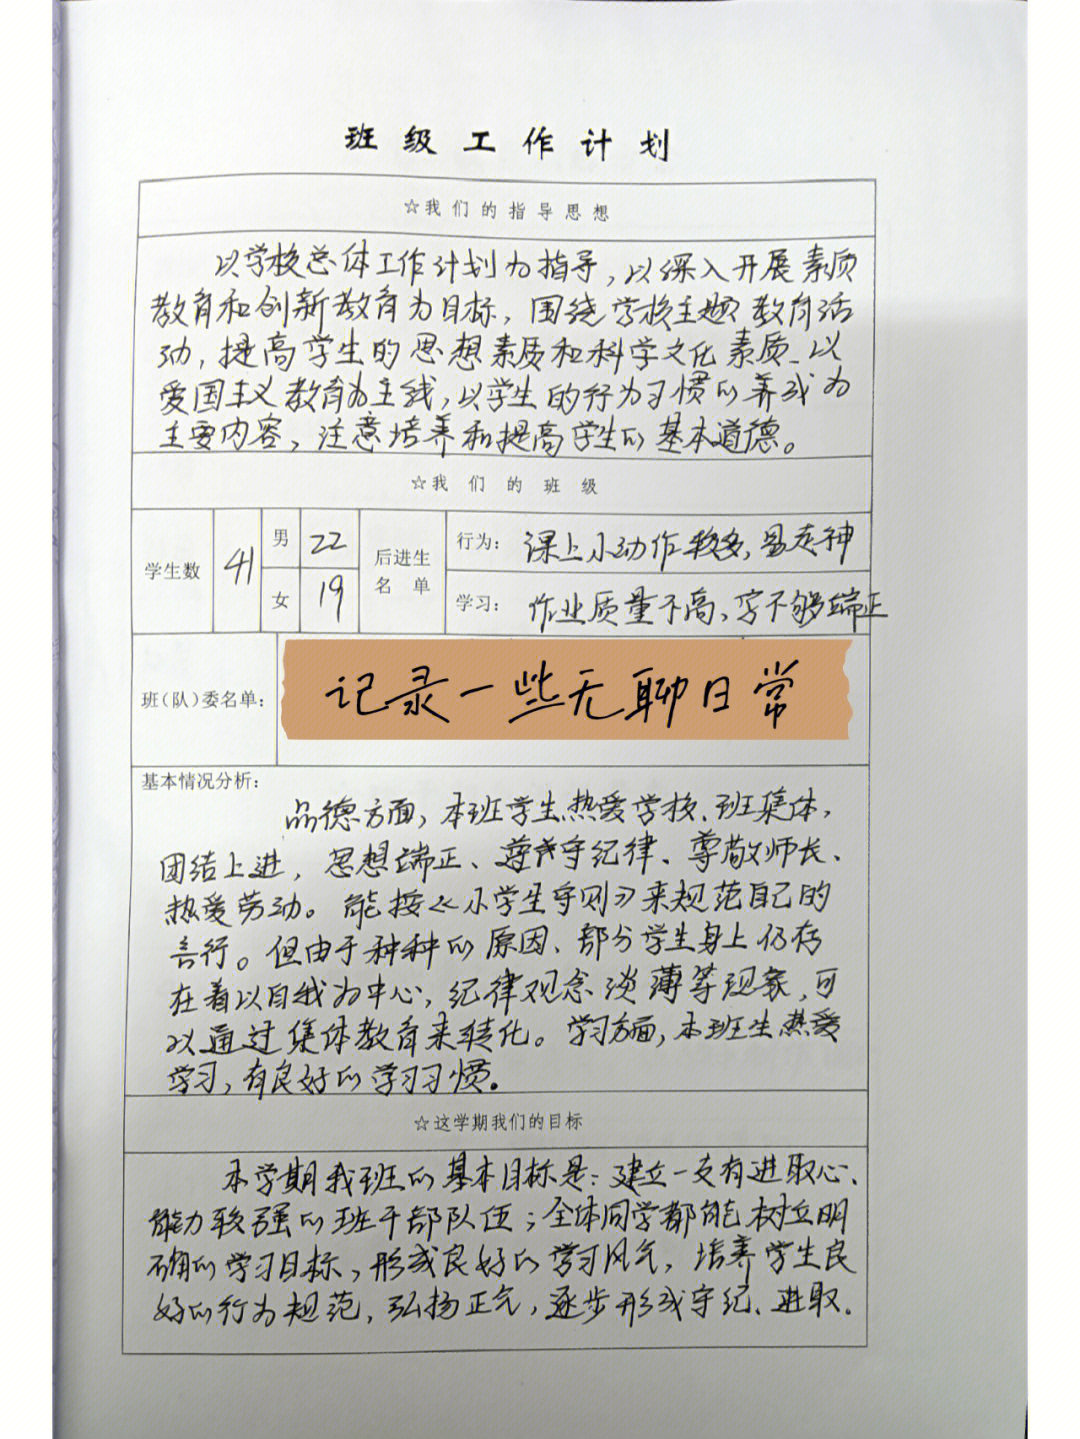 班级工作计划
☆我们的指导思想
以学校总体工作计划为指导，以深入开展素质
教育和创新教育为目标，围绕学校主题教育活
动，提高学生的思想素质和科学文化素质、以
爱国主义教育为主线，以学生的行为习惯的养成为
主要内容，注意培养和提高学生的基本道德。
☆我们的班级
学生数 41 男 22 女 19
后进生名单
行为：课上小动作较多，易走神
学习：作业质量不高，字不够端正
班（队）委名单：
记录一些无聊日常
基本情况分析：
品德方面，本班学生热爱学校、班集体，
团结上进，思想端正、遵守纪律、尊敬师长、
热爱劳动。能按《小学生守则》来规范自己的
言行。但由于种种的原因、部分学生身上仍存
在着以自我为中心，纪律观念淡薄等现象，可
以通过集体教育来转化。学习方面，本班生热爱
学习，有良好的学习习惯。
☆这学期我们的目标
本学期我班的基本目标是：建立一支有进取心、
能力较强的班干部队伍；全体同学都能树立明
确的学习目标，形成良好的学习风气，培养学生良
好的行为规范，弘扬正气，逐步形成守纪、进取、